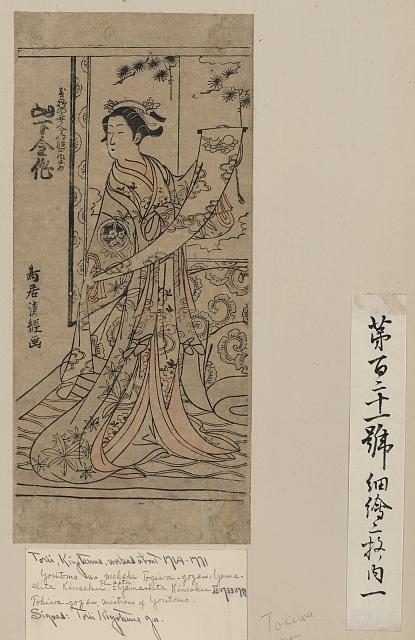 山下金作
鳥居清経画
第百二十一號 細繪二枚内一
Torii Kiyotsune, worked about 1764-1771
Yoritomo no mekake Togiwa-gozen: Yama-
shita Kinsaku. The actor Yamashita Kinsaku II
Tokiwa-gozen, mistress of Yoritomo.
Signed: Torii Kiyotsune ga.
Tokiwa